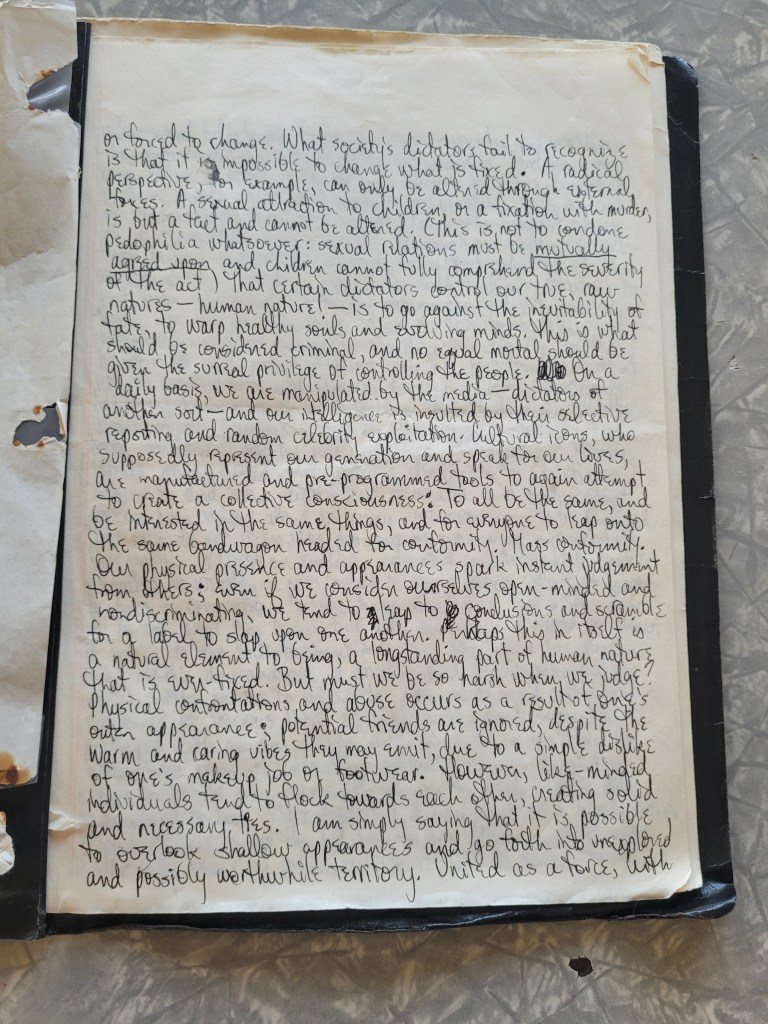 or forced to change. What society's dictators fail to recognize
is that it is impossible to change what is fixed. A radical
perspective, for example, can only be altered through external
forces. A sexual attraction to children, or a fixation with murder,
is but a fact and cannot be altered. (This is not to condone
pedophilia whatsoever: sexual relations must be mutually
agreed upon and children cannot fully comprehend the severity
of the act.) That certain dictators control our true, raw
natures — human nature! — is to go against the inevitability of
fate, to warp healthy souls and evolving minds. This is what
should be considered criminal, and no equal mortal should be
given the surreal privilege of controlling the people. On a
daily basis, we are manipulated by the media — dictators of
another sort — and our intelligence is insulted by their selective
reporting and random celebrity exploitation. Cultural icons, who
supposedly represent our generation and speak for our lives,
are manufactured and pre-programmed tools to again attempt
to create a collective consciousness: To all be the same, and
be interested in the same things, and for everyone to leap onto
the same bandwagon headed for conformity. Mass conformity.
Our physical presence and appearances spark instant judgement
from others; even if we consider ourselves open-minded and
nondiscriminating, we tend to leap to conclusions and scramble
for a label to slap upon one another. Perhaps this in itself is
a natural element to being, a longstanding part of human nature
that is ever-fixed. But must we be so harsh when we judge?
Physical confrontations and abuse occurs as a result of one's
outer appearance; potential friends are ignored, despite the
warm and caring vibes they may emit, due to a simple dislike
of one's makeup job or footwear. However, like-minded
individuals tend to flock towards each other, creating solid
and necessary ties. I am simply saying that it is possible
to overlook shallow appearances and go forth into unexplored
and possibly worthwhile territory. United as a force, with